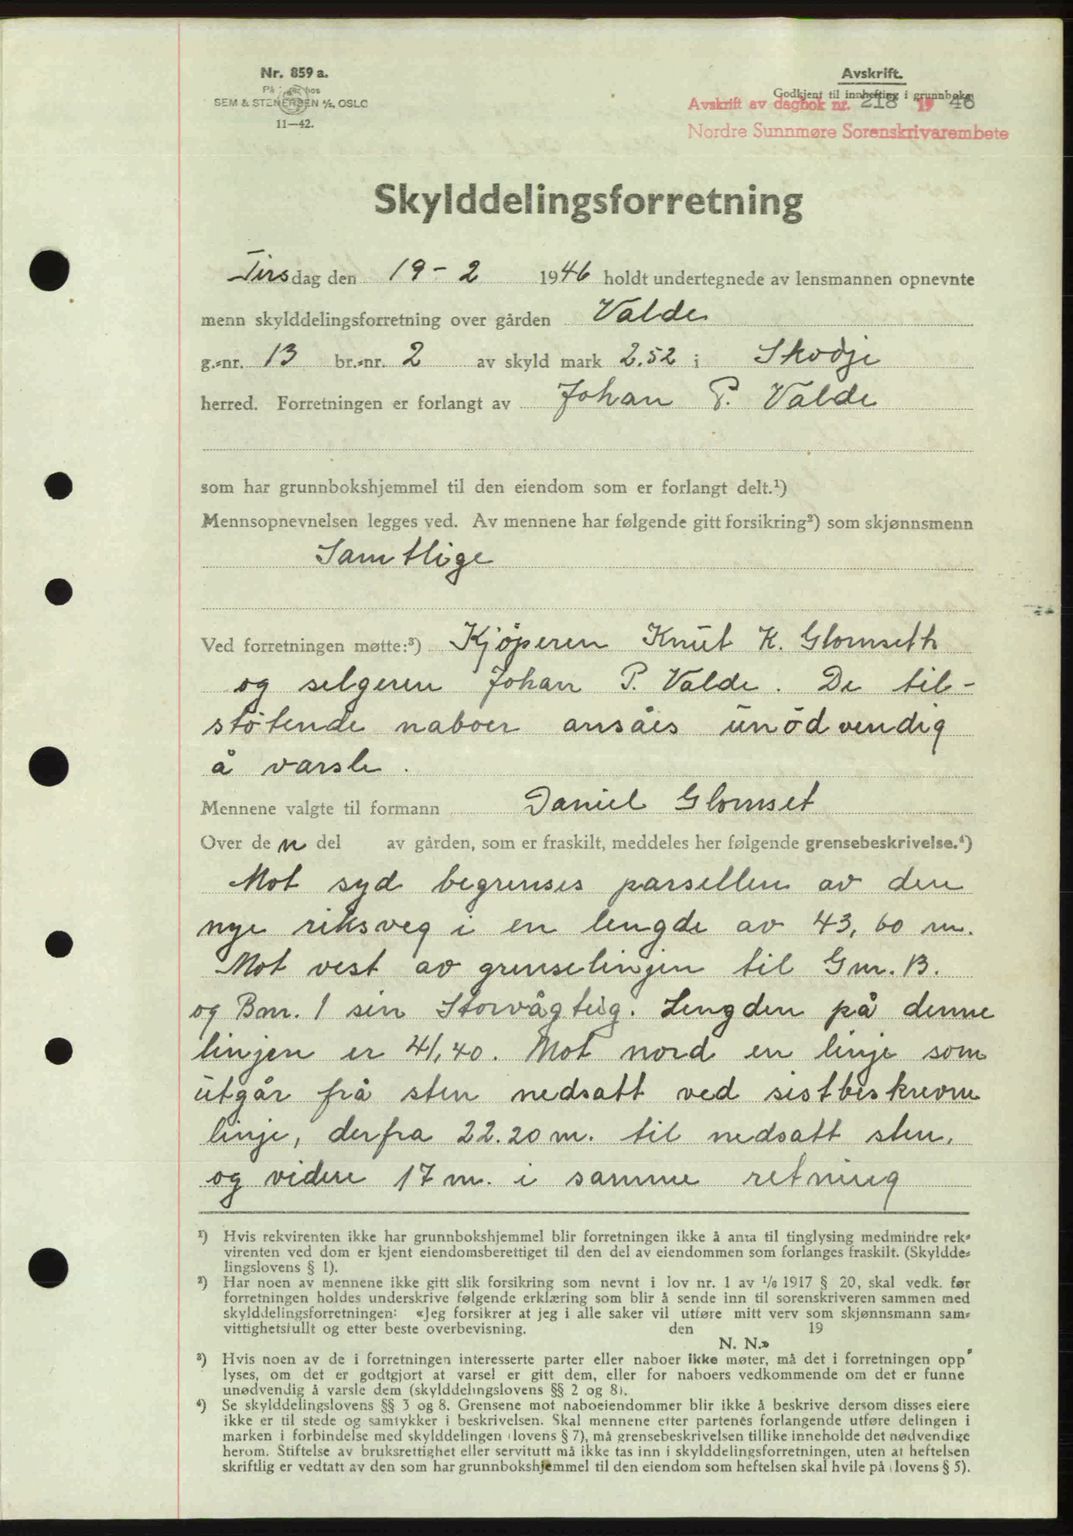 Nr. 859 a.
SEM & STENERSEN A/S. OSLO
11—42.
Avskrift.
Godkjent til innhefting i grunnboken
Avskrift av dagbok nr. 218 1946
Nordre Sunnmøre Sorenskrivarembete
Skylddelingsforretning
Tirsdag den 19-2 1946 holdt undertegnede av lensmannen opnevnte
menn skylddelingsforretning over gården Valde
g.-nr. 13 br.-nr. 2 av skyld mark 2.52 i Skodje
herred. Forretningen er forlangt av Johan P. Valde
som har grunnbokshjemmel til den eiendom som er forlangt delt.¹)
Mennsopnevnelsen legges ved. Av mennene har følgende gitt forsikring²) som skjønnsmenn
Samtlige
Ved forretningen møtte:³) Kjöperen Knut K. Glomseth
og selgeren Johan P. Valde. De til-
stötende naboer ansåes unödvendig
å varsle.
Mennene valgte til formann Daniel Glomset
Over den del av gården, som er fraskilt, meddeles her følgende grensebeskrivelse.⁴)
Mot syd begrenses parsellen av den
nye riksveg i en lengde av 43,60 m.
Mot vest av grenselinjen til Gnr. 13.
og Bnr. 1 sin Storvågteig. Lengden på denne
linjen er 41,40. Mot nord en linje som
utgår frå sten nedsatt ved sistbeskrevne
linje, derfra 22.20 m. til nedsatt sten,
og videre 17 m. i samme retning
¹) Hvis rekvirenten ikke har grunnbokshjemmel blir forretningen ikke å anta til tinglysing medmindre rek-
virenten ved dom er kjent eiendomsberettiget til den del av eiendommen som forlanges fraskilt. (Skyldde-
lingslovens § 1).
²) Har noen av mennene ikke gitt slik forsikring som nevnt i lov nr. 1 av 1/6 1917 § 20, skal vedk. før
forretningen holdes underskrive følgende erklæring som blir å sende inn til sorenskriveren sammen med
skylddelingsforretningen: «Jeg forsikrer at jeg i alle saker vil utføre mitt verv som skjønnsmann sam-
vittighetsfullt og etter beste overbevisning. den 19
N. N.»
³) Hvis noen av de i forretningen interesserte parter eller naboer ikke møter, må det i forretningen opp-
lyses, om det er godtgjort at varsel er gitt dem, eller for naboers vedkommende om det er funne
unødvendig å varsle dem (skylddelingslovens §§ 2 og 8).
⁴) Se skylddelingslovens §§ 3 og 8. Grensene mot naboeiendommer blir ikke å beskrive dersom disses eiere
ikke er til stede og samtykker i beskrivelsen. Skal mennene etter partenes forlangende utføre delingen i
marken i forbindelse med skylddelingen (lovens § 7), må grensebeskrivelsen tillike inneholde det nødvendige
herom. Stiftelse av bruksrettighet eller servitutt må ikke tas inn i skylddelingsforretningen, uten at heftelsen
skriftlig er vedtatt av den som har grunnbokshjemmel til den eiendom som heftelsen skal hvile på (lovens § 5).